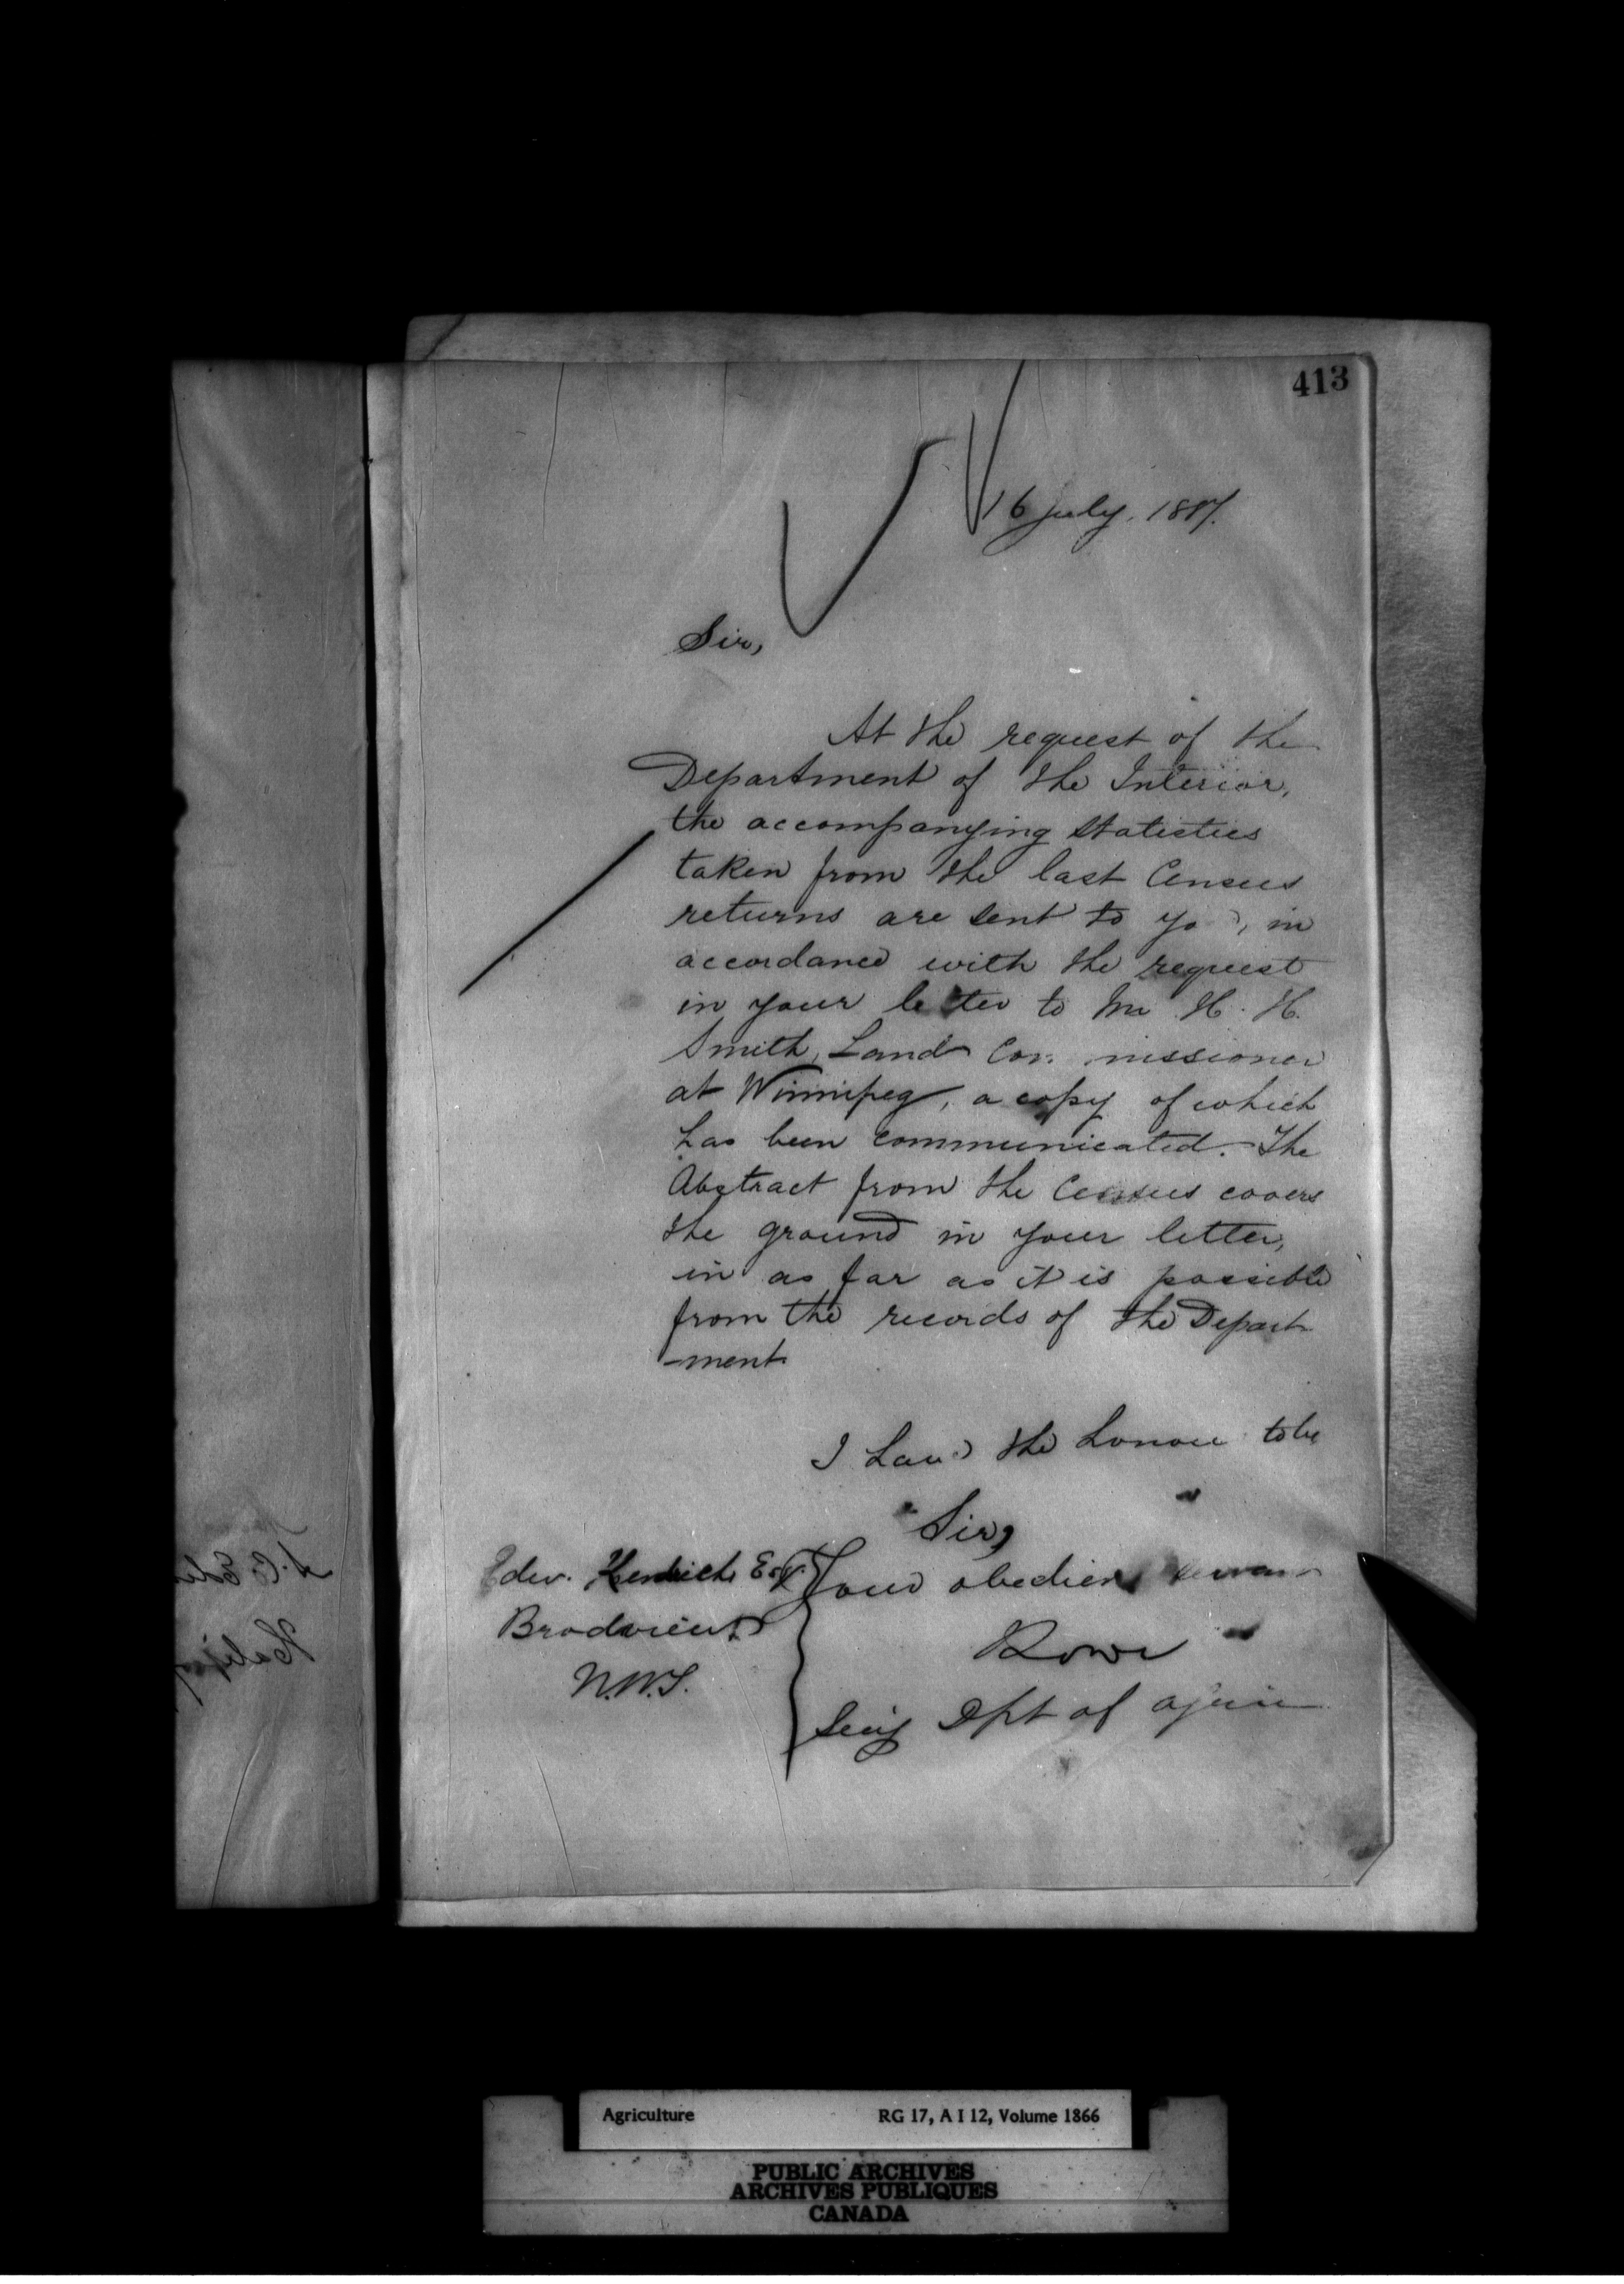 413
16 July, 1887.
Sir,
At the request of the
Department of the Interior,
the accompanying statistics
taken from the last Census
returns are sent to yo , in
accordance with the request
in your letter to Mr H. H.
Smith, Land Commissioner
at Winnipeg, a copy of which
has been communicated. The
Abstract from the Census covers
the ground in your letter,
in as far as it is possible
from the records of the Depart
-ment
I have the honour to be
Sir,
Your obedient servant
Edw. Esq.
N.W.T.
Secy Dpt of
Agriculture RG 17, A I 12, Volume 1866
PUBLIC ARCHIVES
ARCHIVES PUBLIQUES
CANADA